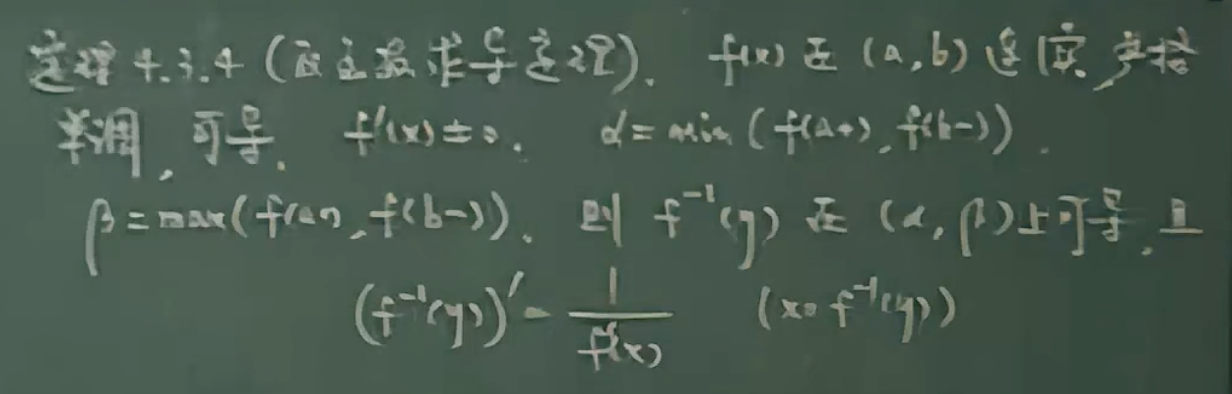 定理4.3.4(反函数求导定理). f(x)在(a,b)连续,严格
单调,可导, f'(x)≠0. α=min(f(a+),f(b-)).
β=max(f(a+),f(b-)). 则 f⁻¹(y)在(α,β)上可导,且
(f⁻¹(y))'=1/f'(x) (x=f⁻¹(y))